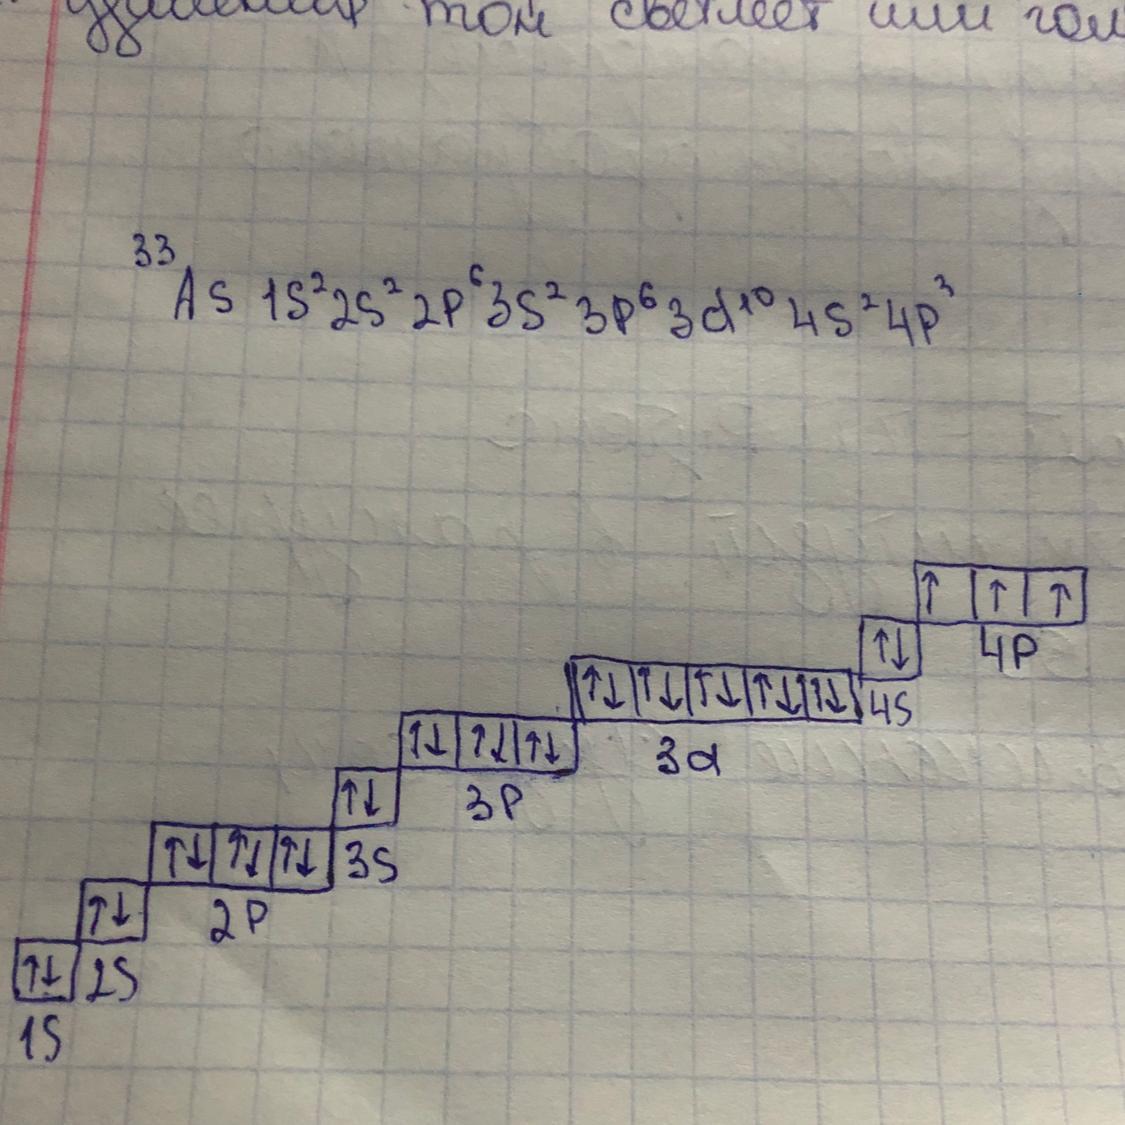 том светлеет или
33
As 1S² 2S² 2P⁶ 3S² 3P⁶ 3d¹⁰ 4S² 4P³
↑ ↑ ↑
↑↓ 4P
↑↓ ↑↓ ↑↓ ↑↓ ↑↓ 4S
↑↓ ↑↓ ↑↓ 3d
↑↓ 3P
↑↓ ↑↓ ↑↓ 3S
↑↓ 2P
↑↓ 2S
1S